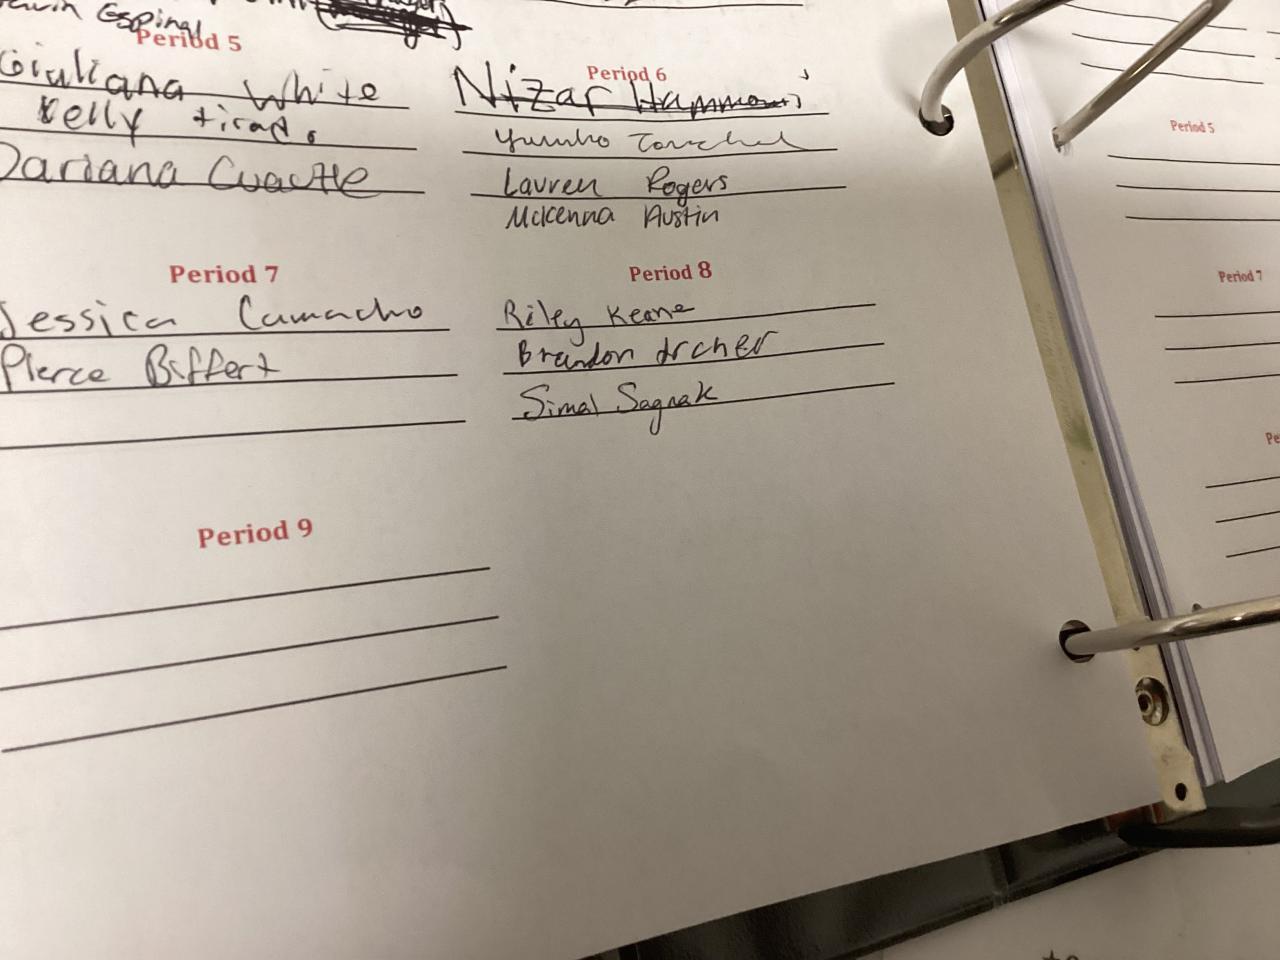 Espinal
Period 5
Giuliana White
Kelly tirado
Dariana Cuautle
Period 6
Nizar
Lauren Rogers
McKenna Austin
Period 7
Jessica Camacho
Pierce Biffert
Period 8
Riley Keane
Brandon Archer
Simal Sagnak
Period 9
Period 5
Period 7